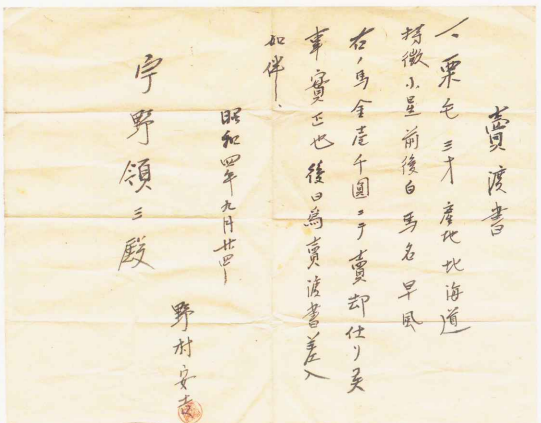 賣渡書
一、栗毛 三才 産地北海道
特徴小星前後白 馬名 早風
右ノ馬金壱千圓ニテ賣却仕リ候
事實正也 後日為賣渡書差入
如件、
昭和四年九月廿四日
野村安吉
宇野領三殿